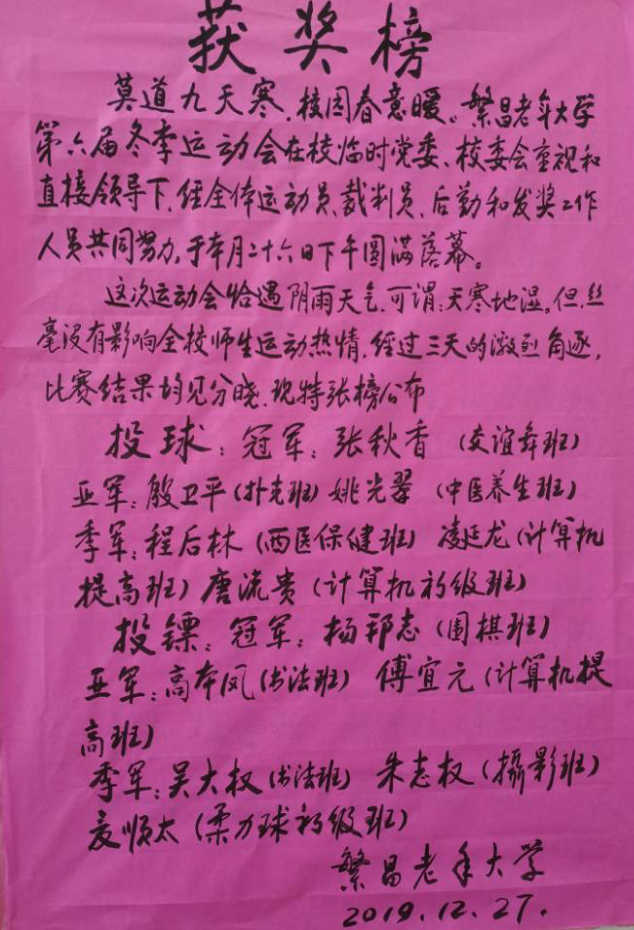 获奖榜
莫道九天寒，校园春意暖。繁昌老年大学
第六届冬季运动会在校临时党委、校委会重视和
直接领导下，经全体运动员、裁判员、后勤和发奖工作
人员共同努力，于本月二十六日下午圆满落幕。
这次运动会恰遇阴雨天气，可谓：天寒地湿。但，丝
毫没有影响全校师生运动热情，经过三天的激烈角逐，
比赛结果均见分晓，现特张榜公布
投球：冠军：张秋香（交谊舞班）
亚军：殷卫平（扑克班）姚光翠（中医养生班）
季军：程后林（西医保健班）凌延龙（计算机
提高班）唐流贵（计算机初级班）
投镖：冠军：杨邦志（围棋班）
亚军：高本凤（书法班）傅宜元（计算机提
高班）
季军：吴大权（书法班）朱志权（摄影班）
顺太（柔力球初级班）
繁昌老年大学
2019.12.27.